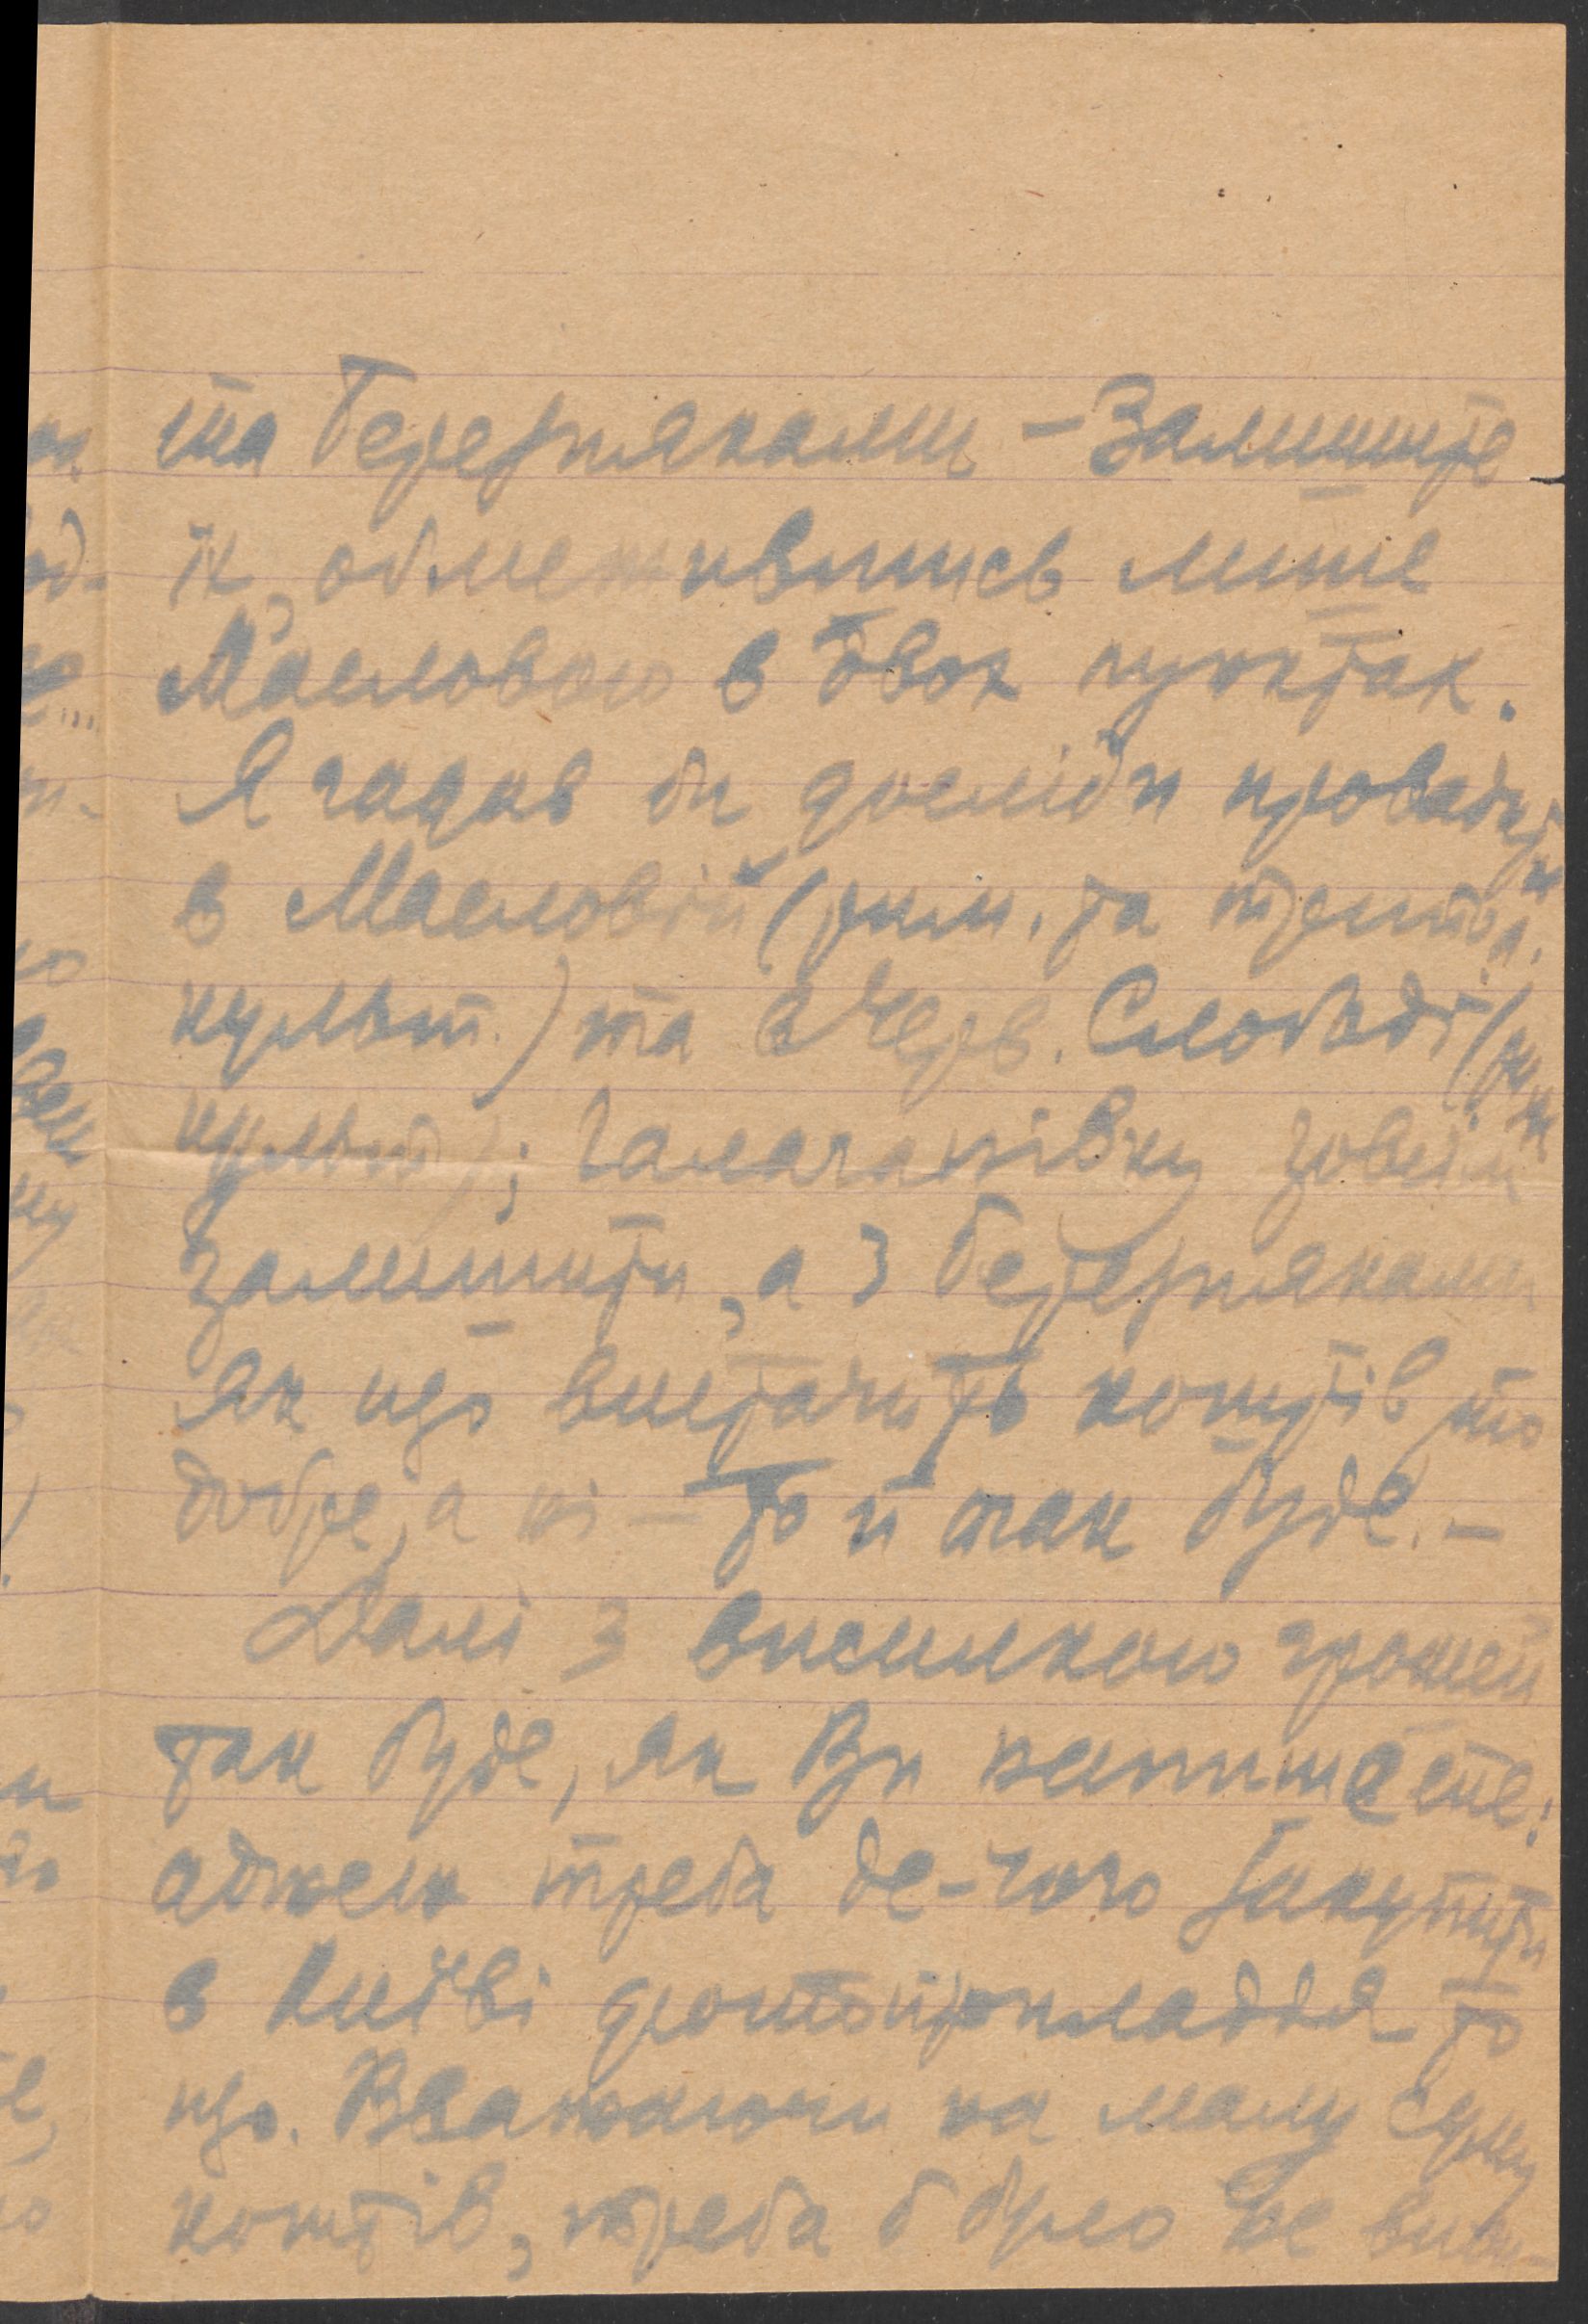 та Березняками — Залишіте
їх, обмеживвшись лише
Масловою в двох пунктах.
Я гадав би досліди провадити
в Масловій (рим. та трипіл.
культ.) та в Черв. Слободі (рим
культ); Галаганівку зовсім
залишити, а з Березняками
як що вистачить коштів то
добре, а ні — то й так буде. —
Далі з висилкою грошей
так буде, як Ви напишете:
аджеж треба де-чого закупити
в Київі фотоприладдя то
що. Вважаючи на малу суму
коштів, треба б було не